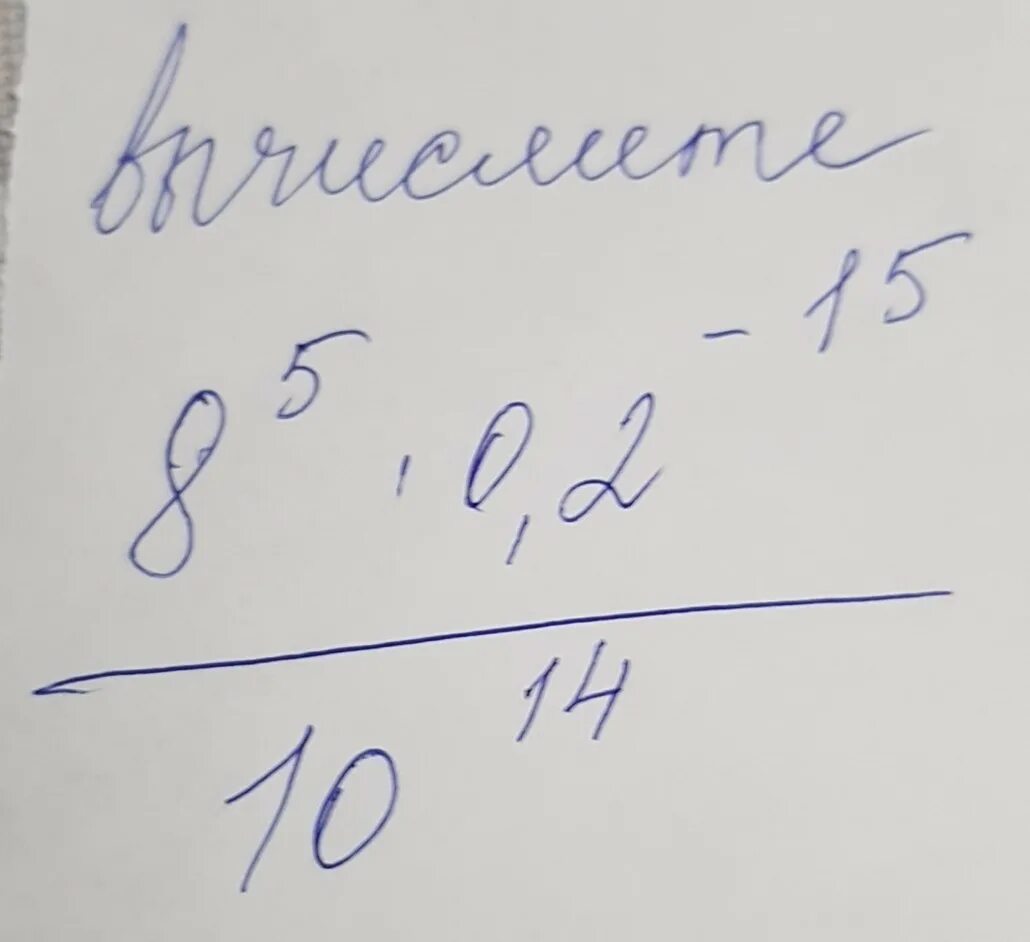 вычислите
8⁵ · 0,2⁻¹⁵
10¹⁴